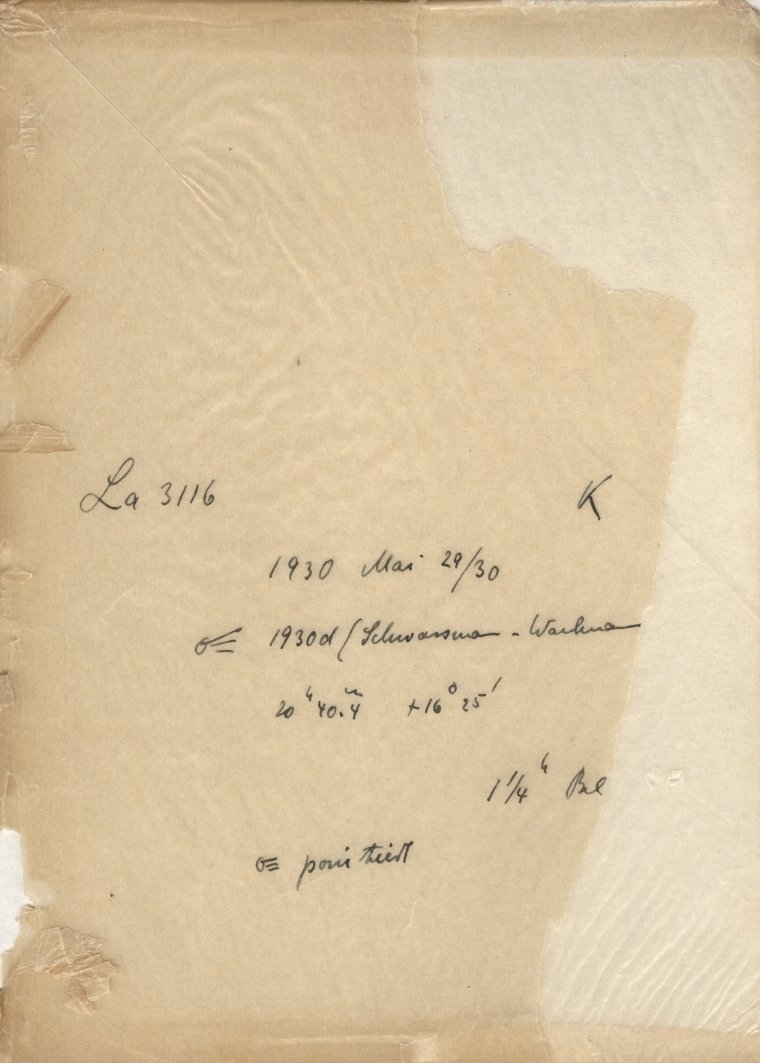 La 3116 K
1930 Mai 29/30
☄ 1930d (Schwassma - Wachma
20ʰ 40.4ᵐ +16° 25'
1 1/4ʰ Bel
☄ positiert